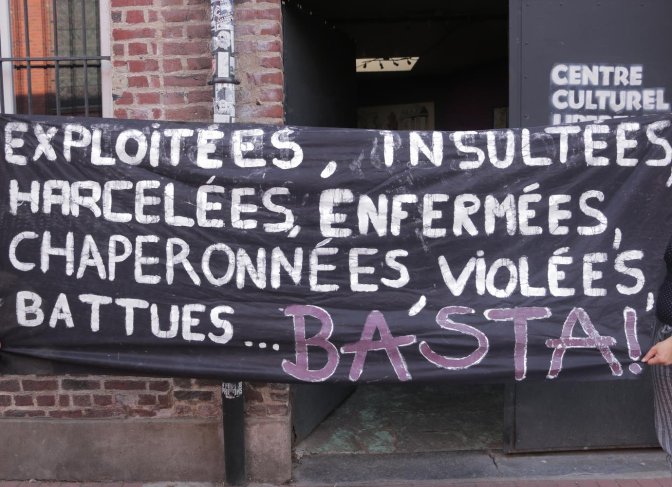 CENTRE
CULTUREL
EXPLOITÉES, INSULTÉES
HARCELÉES, ENFERMÉES,
CHAPERONNÉES, VIOLÉES,
BATTUES... BASTA!